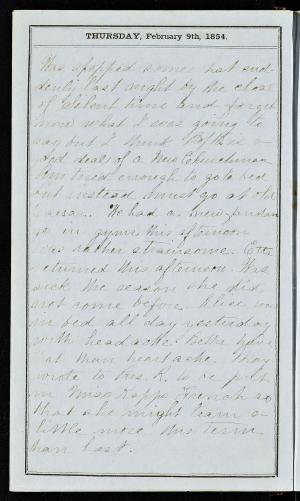 THURSDAY, February 9th, 1854.
Was stopped somewhat sud-
denly last night by the close
of silent time and forget
now what I was going to
say but I think
good deal of a
tired enough to go to bed
but instead must go at old
We had a new
in gym this afternoon
was rather
returned this afternoon. Was
sick the reason she did
not come before. Alice was
in bed all day yesterday
with headache. Better have
that than heartache. May
wrote to Mrs. R. to be put
in Miss Rapp's French so
that she might learn a
little more this term
than last.